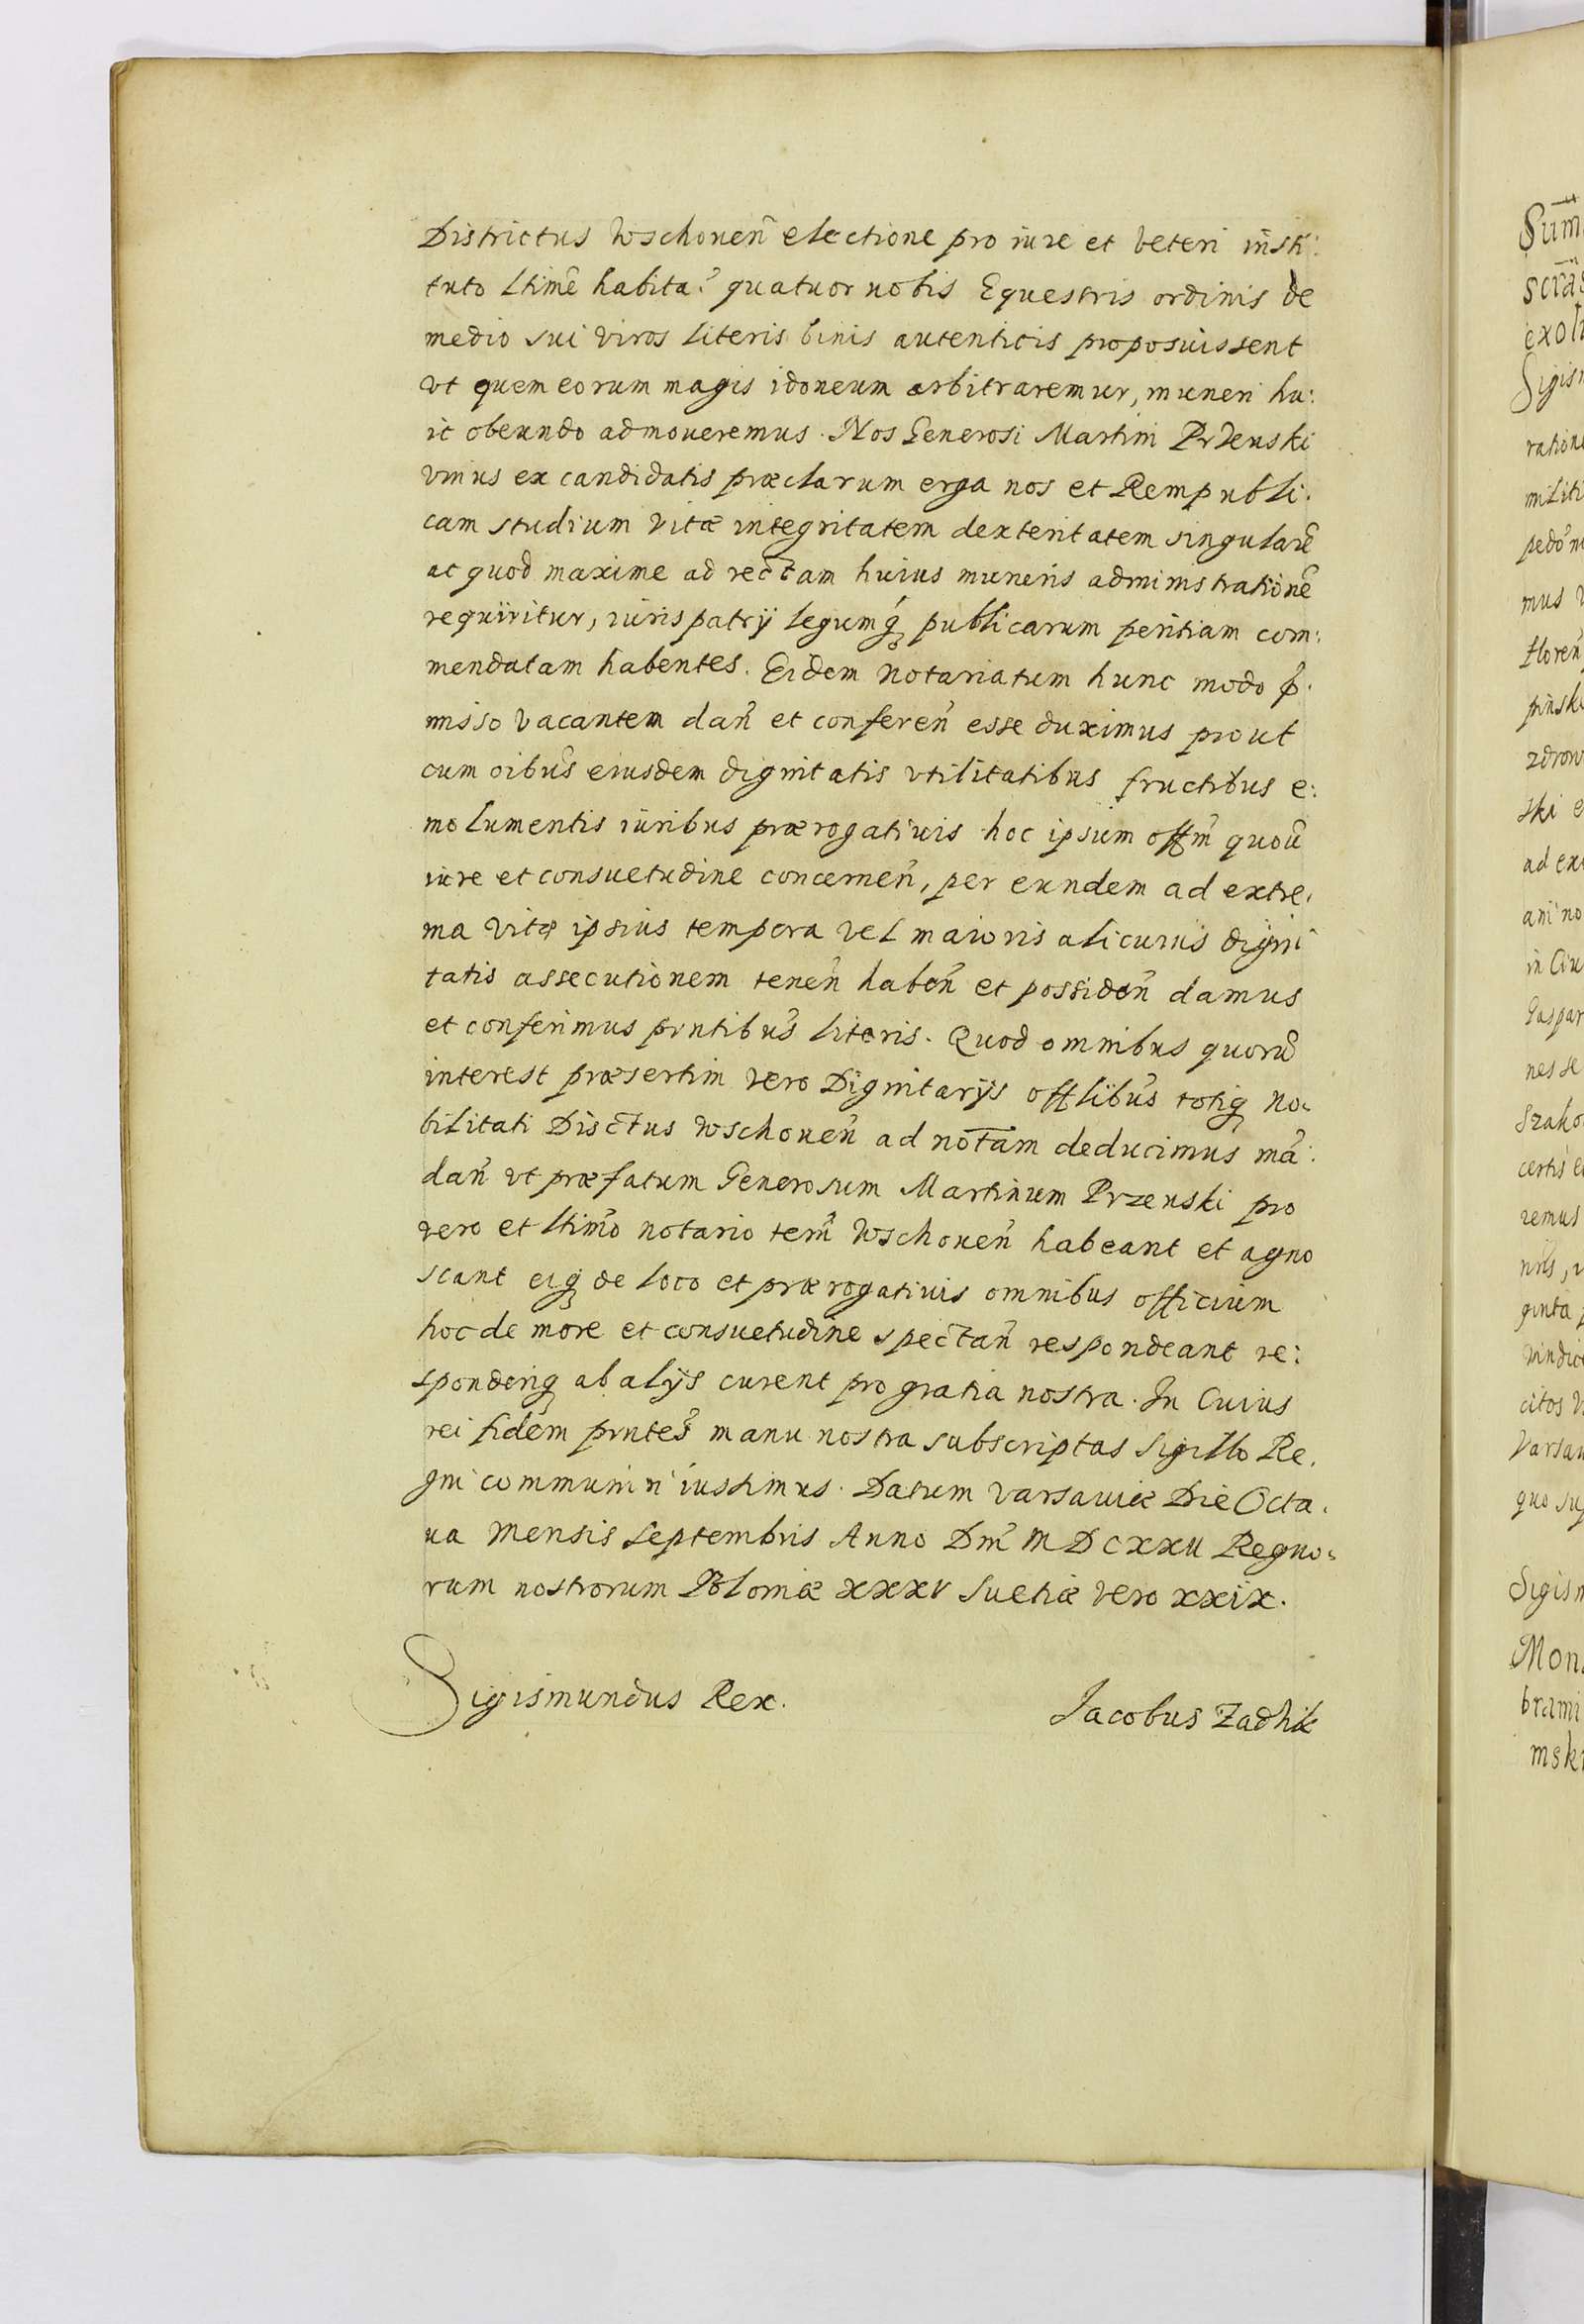 Districtus Wschouen̄ electione pro iure et veteri insti:
tuto ltimē habita? quatuor nobis Equestris ordinis de
medio sui viros literis binis autenticis proposuissent
vt quem eorum magis idoneum arbitraremur, muneri hu:
ic obeundo admoueremus. Nos Generosi Martini Przenski
vnius ex candidatis præclarum erga nos et Rempubli:
cam studium vitæ integritatem dexteritatem singularē
ac quod maxime ad rectam huius muneris administrationē
requiritur, iuris patrÿ legumq́ꝫ publicarum peritiam com:
mendatam habentes. Eidem notariatum hunc modo p̄:
misso vacantem dan̄ et conferen̄ esse duximus prout
cum oibus̄ eiusdem dignitatis vtilitatibus fructibus e:
molumentis iuribus prærogatiuis hoc ipsum offm̄ quouī
iure et consuetudine concernen̄, per eundem ad extre:
ma vitæ ipsius tempora vel maioris alicuius digni
tatis assecutionem tenen̄ haben̄ et possiden̄ damus
et conferimus pn̄tibus̄ literis. Quod omnibus quorū
interest præsertim vero Dignitarÿs offlibus̄ totiqꝫ no:
bilitati Disc̄tus Wschouen̄ ad not̄am deducimus mā:
dan̄ vt præfatum Generosum Martinum Przenski pro
vero et ltimo̅ notario terr̄ Wschouen̄ habeant et agno
scant eiqꝫ de loco et prærogatiuis omnibus officium
hoc de more et consuetudine spectan̄ respondeant re:
sponderiqꝫ ab alÿs curent pro gratia nostra. In Cuius
rei fidem pn̄tes manu nostra subscriptas sigillo Re:
gni communiri iussimus. Datum varsauiæ Die Octa:
ua Mensis Septembris Anno Dni̅ MDCXXII Regno:
rum nostrorum Poloniæ XXXV Suetiæ vero XXIX.
Sigismundus Rex.
Jacobus Zadhik